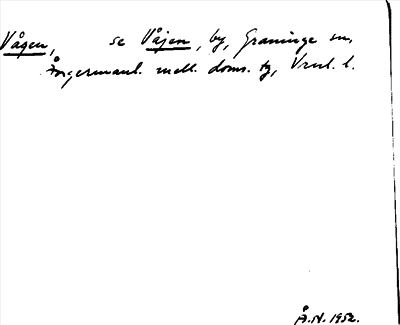 Vågen, se Våjen, by, Graninge sn,
Ångermanl. mell. doms. tg, Vrnl. l.
Å.N. 1952.